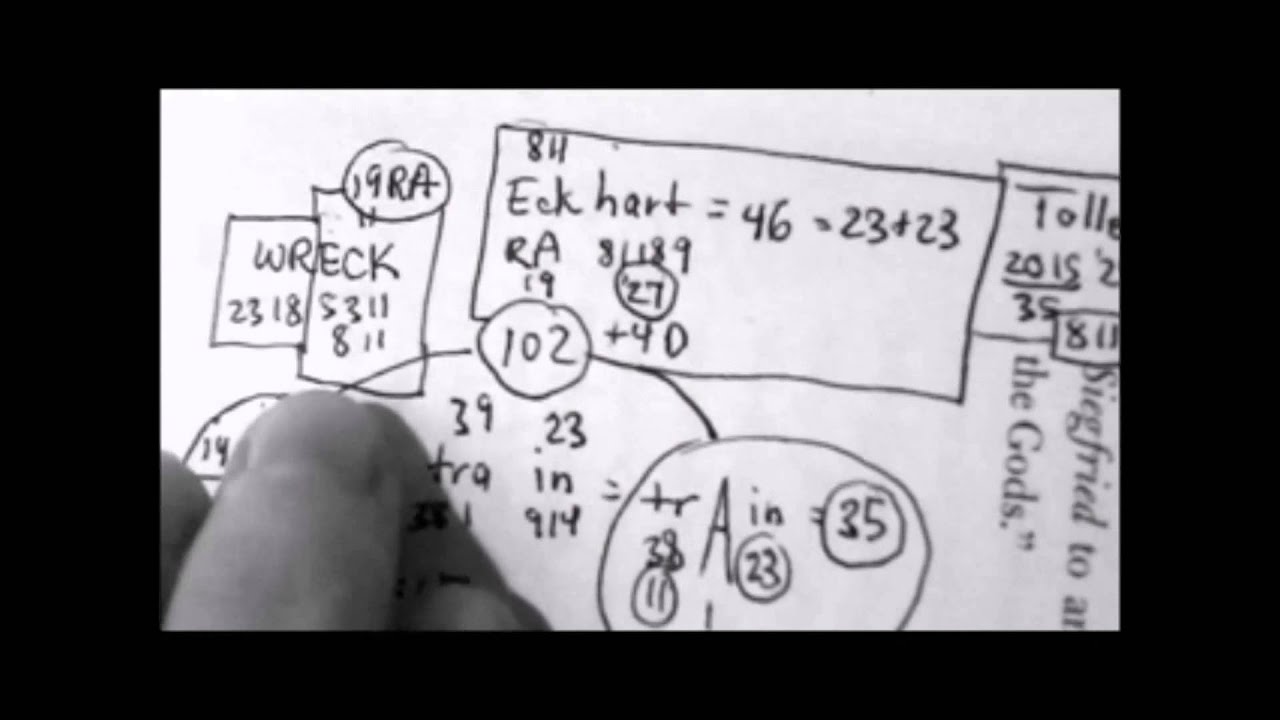 19RA
11
WRECK
2318 5311
8 11
811
Eckhart = 46 = 23+23
RA 81189
19 27
102 +4D
Tolle
2015
35
811
14
39 23
tra in = tr A in = 35
381 914
38 23
11
Siegfried to
the Gods.”